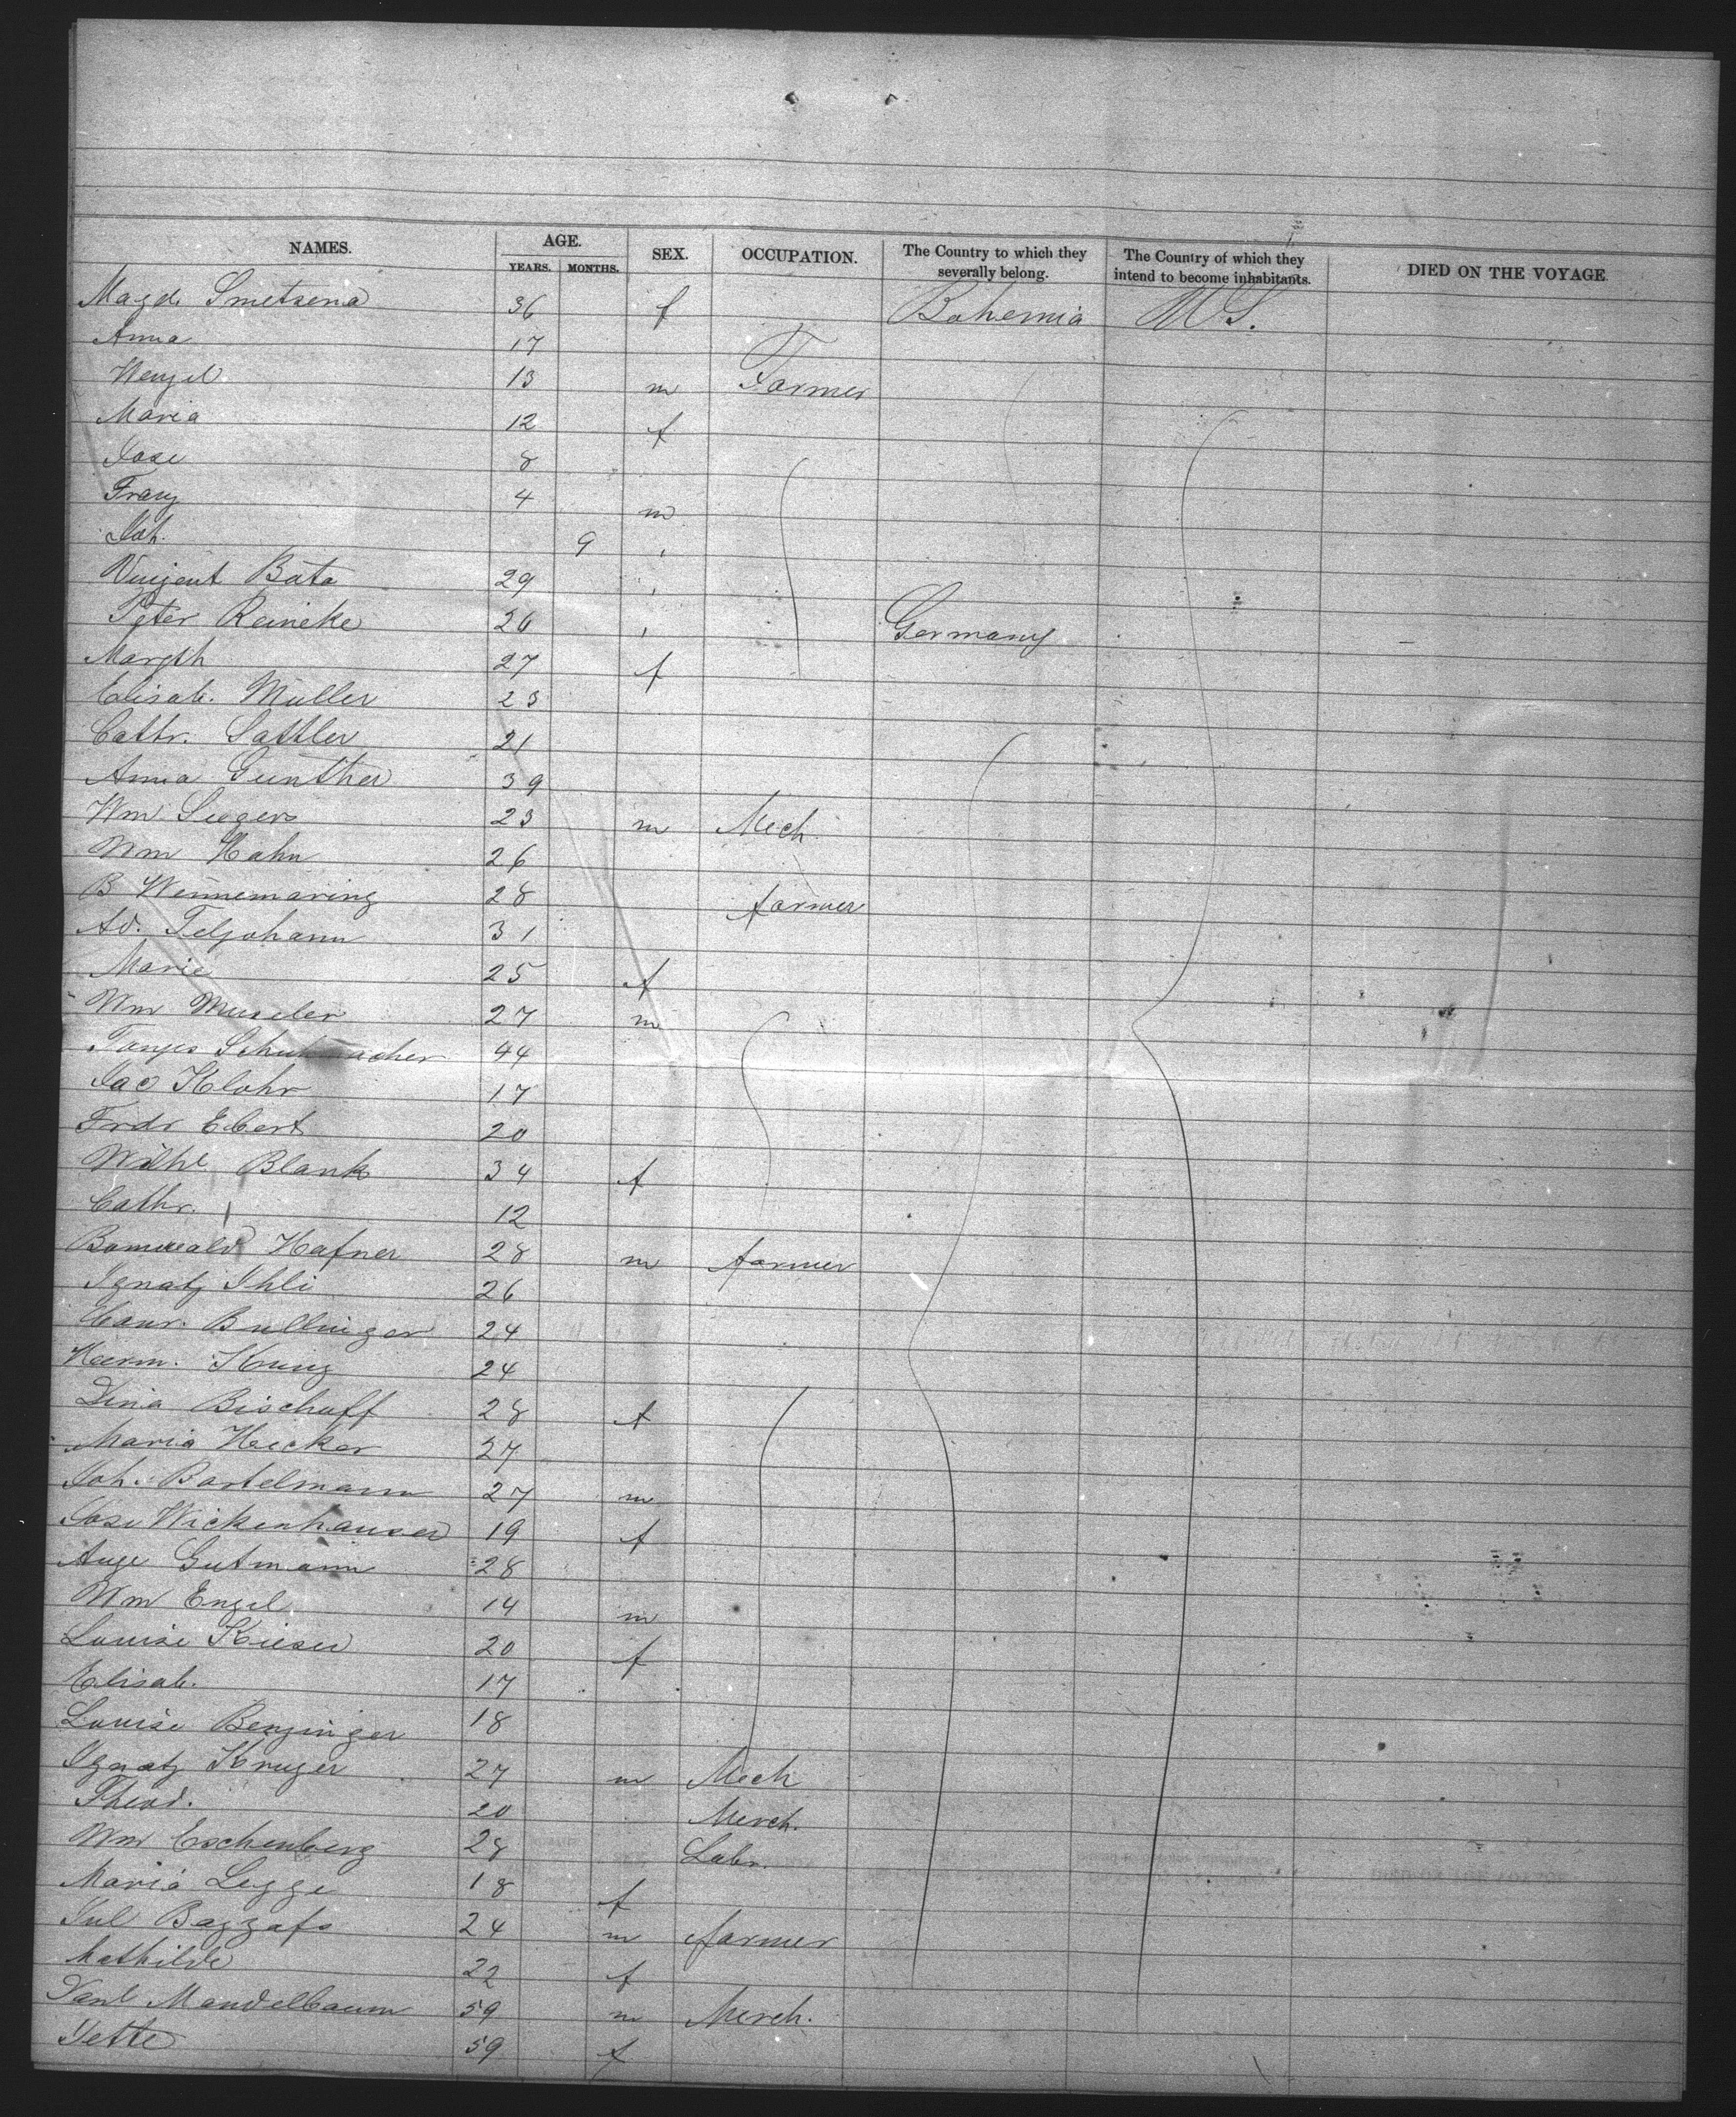 NAMES. AGE. SEX. OCCUPATION. The Country to which they severally belong. The Country of which they intend to become inhabitants. DIED ON THE VOYAGE.
YEARS. MONTHS.
Magd. Smetsena 36 f Bohemia U S.
Anna 17
Wenzel 13 m Farmer
Maria 12 f
Jose 8
Franz 4 m
Joh. 9 "
Vinzent Bata 29 "
Peter Reineke 26 " Germany
Margth 27 f
Elisab. Muller 23
Cathr. Sattler 21
Anna Gunther 39
Wm Seegers 23 m Mech.
Wm Hahn 26
B Wennemaring 28 farmer
Ad. Teljohann 31
Marie 25 f
Wm Museler 27 m
Tonges Schuhmacher 44
Jac Klohr 17
Frdr Ebert 20
Wilhe Blank 34 f
Cathr. 12
Hafner 28 m farmer
Ignatz Ihli 26
Conr. Bullinger 24
Herm. 24
Dina Bischoff 28 f
Maria Hecker 27
Joh. Bartelmann 27 m
Jose Wickenhauser 19 f
Auge Gutmann 28
Wm Engel 14 m
Louise Kieser 20 f
Elisab. 17
Louise Benzinger 18
Ignatz Kruger 27 m Mech
Theod. 20 Merch.
Wm Eschenberg 28 Labr.
Maria Legge 18 f
Jul 24 m farmer
Mathilde 22 f
Mandelbaum 59 m Merch.
Jette 59 f